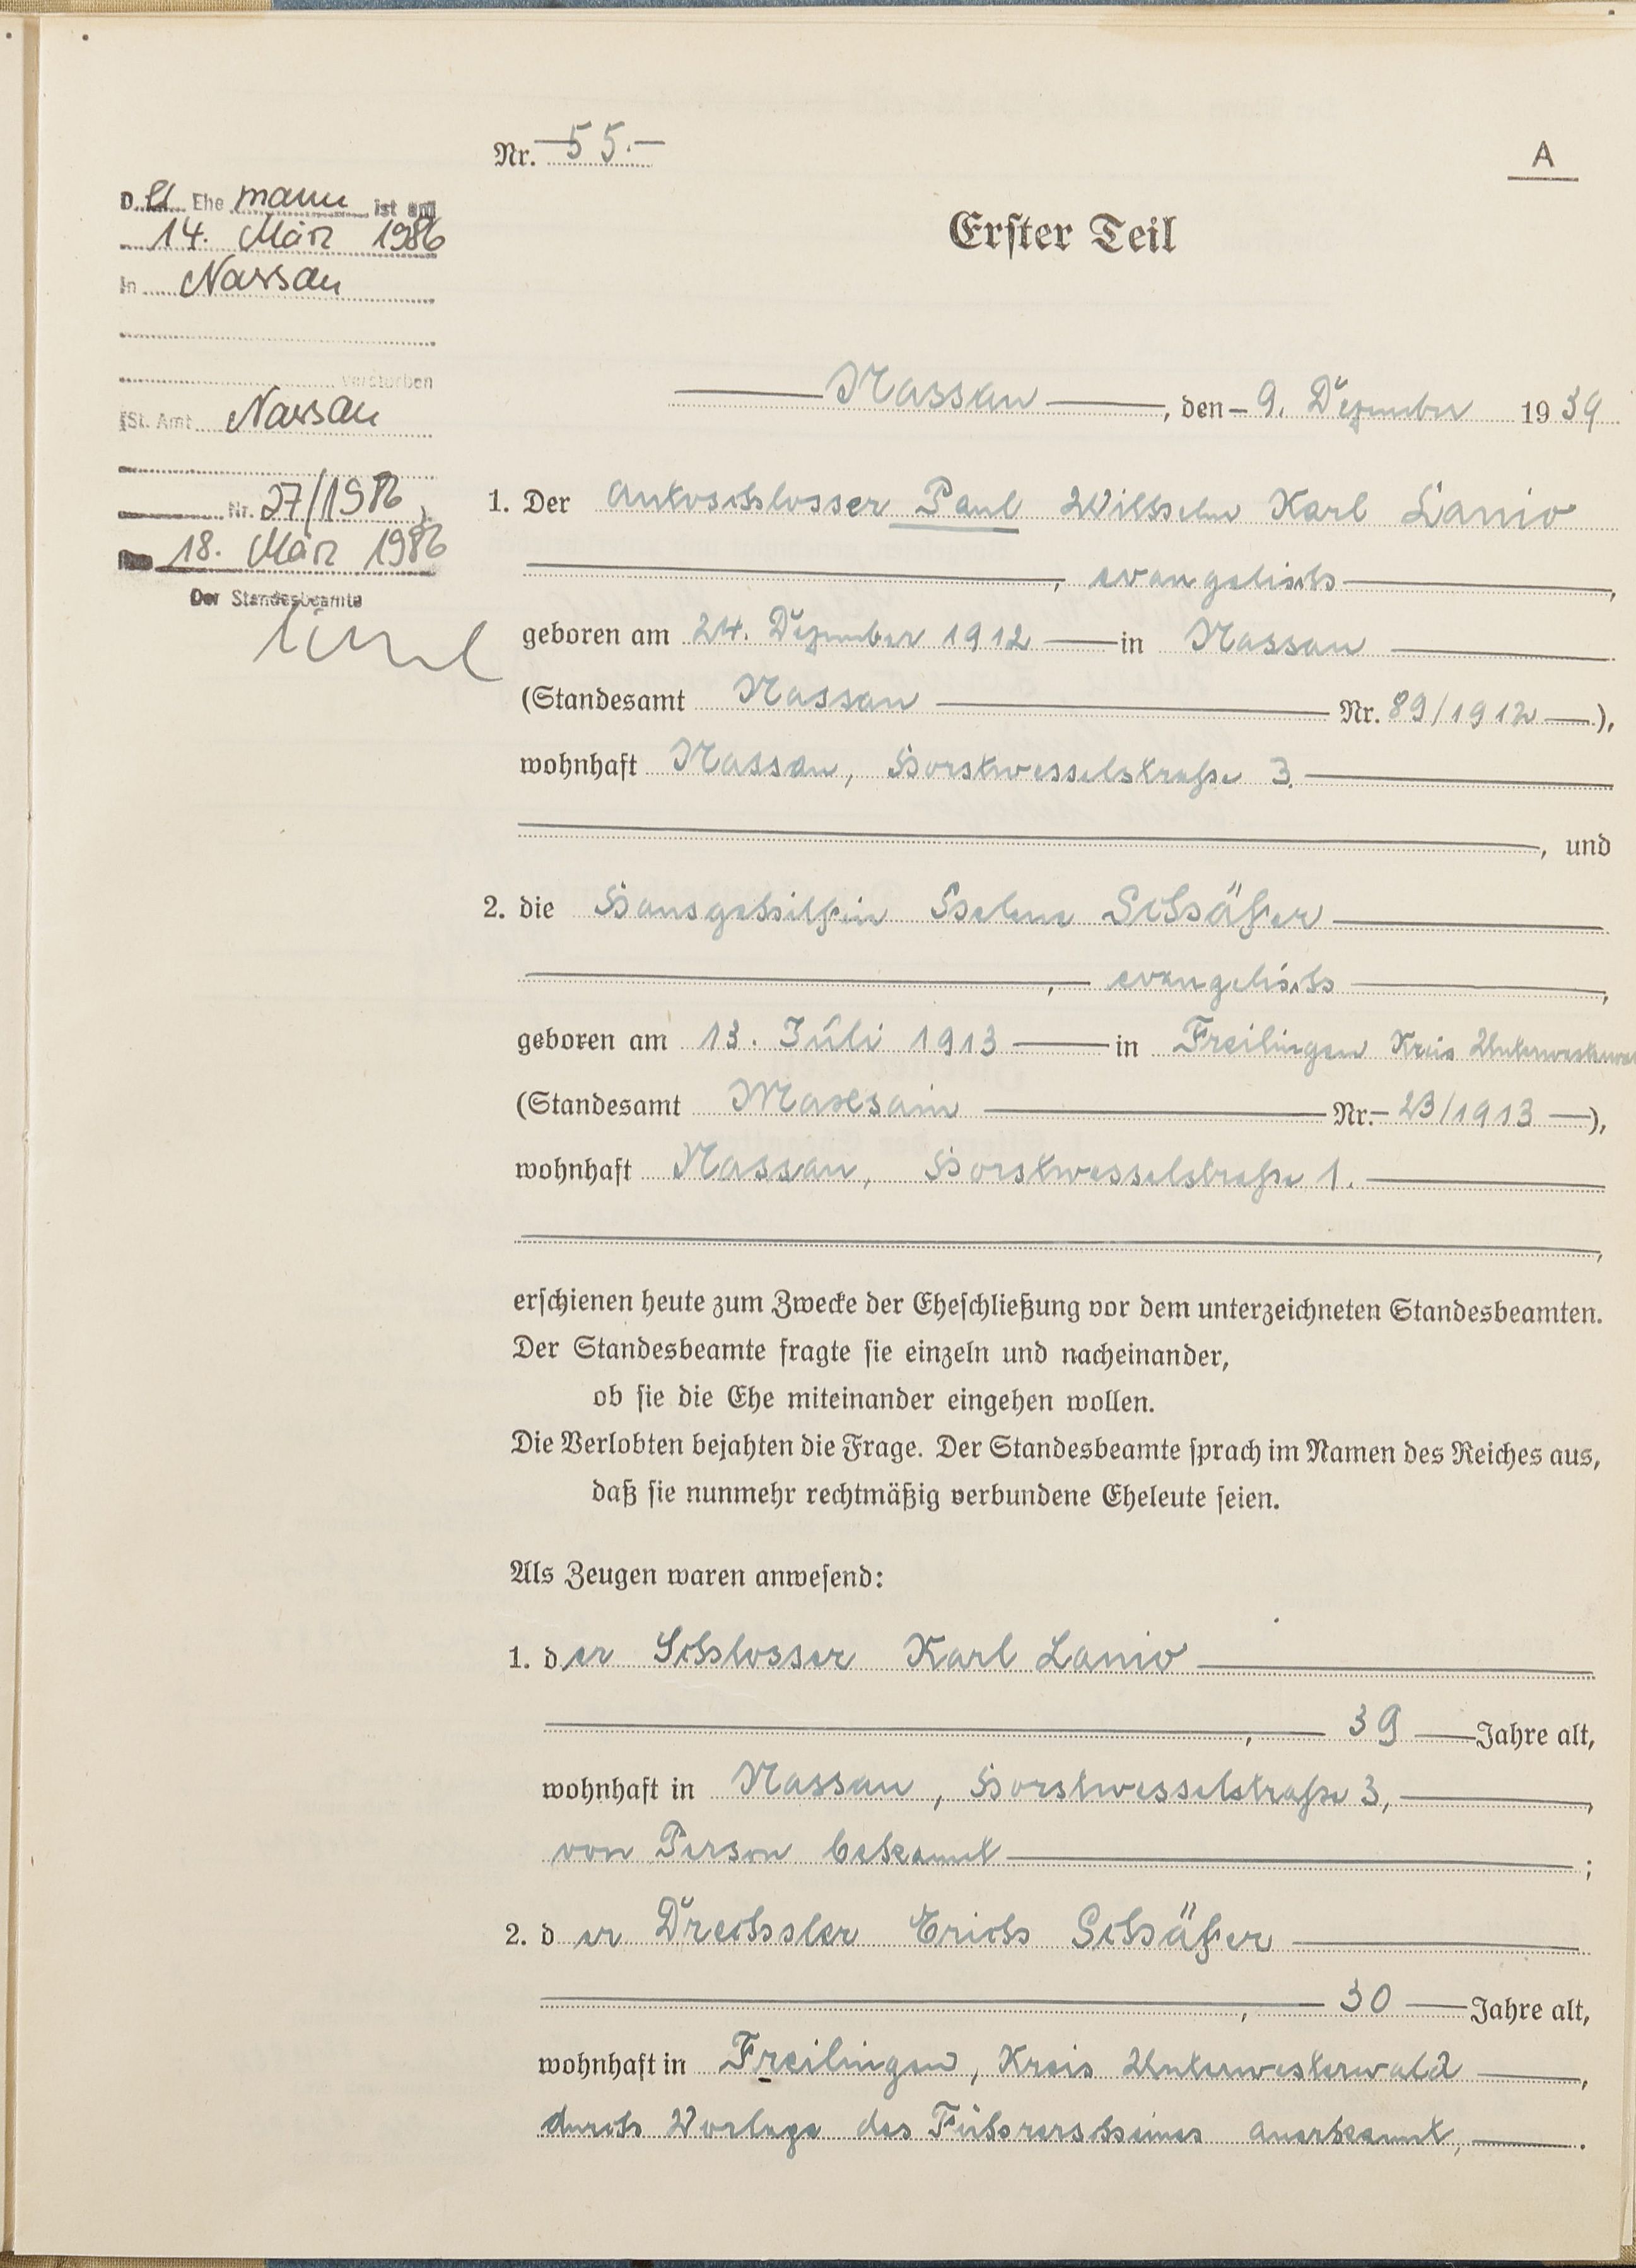 Nr. 55.
A
Erster Teil
Nassau, den 9. Dezember 1939
1. Der Autoschlosser Paul Wilhelm Karl Lanio
, evangelisch,
geboren am 24. Dezember 1912 in Nassau
(Standesamt Nassau Nr. 89/1912),
wohnhaft Nassau, Horstwesselstraße 3.
, und
2. die Hausgehilfin Helene Schäfer
, evangelisch,
geboren am 13. Juli 1913 in Freilingen Kreis
(Standesamt Maxsain Nr. 23/1913),
wohnhaft Nassau, Horstwesselstraße 1.
,
erschienen heute zum Zwecke der Eheschließung vor dem unterzeichneten Standesbeamten.
Der Standesbeamte fragte sie einzeln und nacheinander,
ob sie die Ehe miteinander eingehen wollen.
Die Verlobten bejahten die Frage. Der Standesbeamte sprach im Namen des Reiches aus,
daß sie nunmehr rechtmäßig verbundene Eheleute seien.
Als Zeugen waren anwesend:
1. der Schlosser Karl Lanio
, 39 Jahre alt,
wohnhaft in Nassau, Horstwesselstraße 3,
von Person bekannt;
2. der Drechsler Erich Schäfer
, 30 Jahre alt,
wohnhaft in Freilingen, Kreis Unterwesterwald,
durch Vorlage des Führerscheines anerkannt,.
Der Ehemann ist am
14. März 1986
in Nassau
verstorben
(St. Amt Nassau
Nr. 27/1986)
18. März 1986
Der Standesbeamte